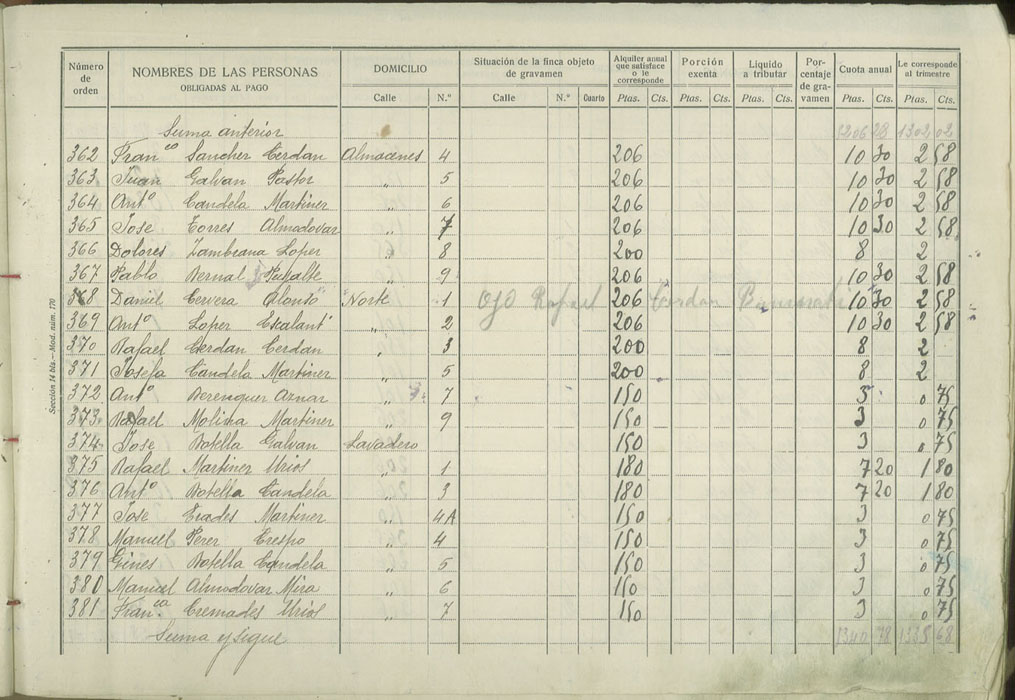 Número de orden NOMBRES DE LAS PERSONAS OBLIGADAS AL PAGO DOMICILIO Situación de la finca objeto de gravamen Alquiler anual que satisface o le corresponde Porción exenta Líquido a tributar Porcentaje de gravamen Cuota anual Le corresponde al trimestre
Calle N.º Calle N.º Cuarto Ptas. Cts. Ptas. Cts. Ptas. Cts. Ptas. Cts. Ptas. Cts.
Suma anterior 1302 02
362 Fran.co Sancher Cerdan Almacenes 4 206 10 30 2 58
363 Juan Galvan Pastor " 5 206 10 30 2 58
364 Antº Candela Martiner " 6 206 10 30 2 58
365 Jose Torres Almodovar " 7 206 10 30 2 58
366 Dolores Zambrana Loper " 8 200 8 2
367 Pablo Bernal Pujalte " 9 206 10 30 2 58
368 Daniel Cervera Alonso Norte 1 ojo Rafael 206 Cerdan 10 30 2 58
369 Antº Loper Escalant " 2 206 10 30 2 58
370 Rafael Cerdan Cerdan " 3 200 8 2
371 Josefa Candela Martiner " 5 200 8 2
372 Antº Berenguer Aznar " 7 150 3 0 75
373 Rafael Molina Martiner " 9 150 3 0 75
374 Jose Botella Galvan Lavadero 150 3 0 75
375 Rafael Martiner Urios " 1 180 7 20 1 80
376 Antº Botella Candela " 3 180 7 20 1 80
377 Jose Erades Martiner " 4A 150 3 0 75
378 Manuel Perer Crespo " 4 150 3 0 75
379 Gines Botella Candela " 5 150 3 0 75
380 Manuel Almodovar Mira " 6 150 3 0 75
381 Fran.ca Cremades Urios " 7 150 3 0 75
Suma y sigue 1340 78 1335 68
Sección 14 bis.—Mod. núm. 170